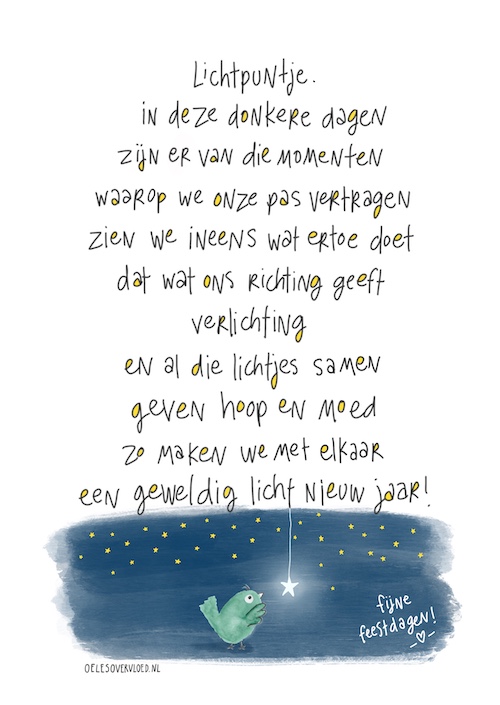 Lichtpuntje.
in deze donkere dagen
zijn er van die momenten
waarop we onze pas vertragen
zien we ineens wat ertoe doet
dat wat ons richting geeft
verlichting
en al die lichtjes samen
geven hoop en moed
zo maken we met elkaar
een geweldig licht nieuw jaar!
fijne
feestdagen!
OELESOVERVLOED.NL